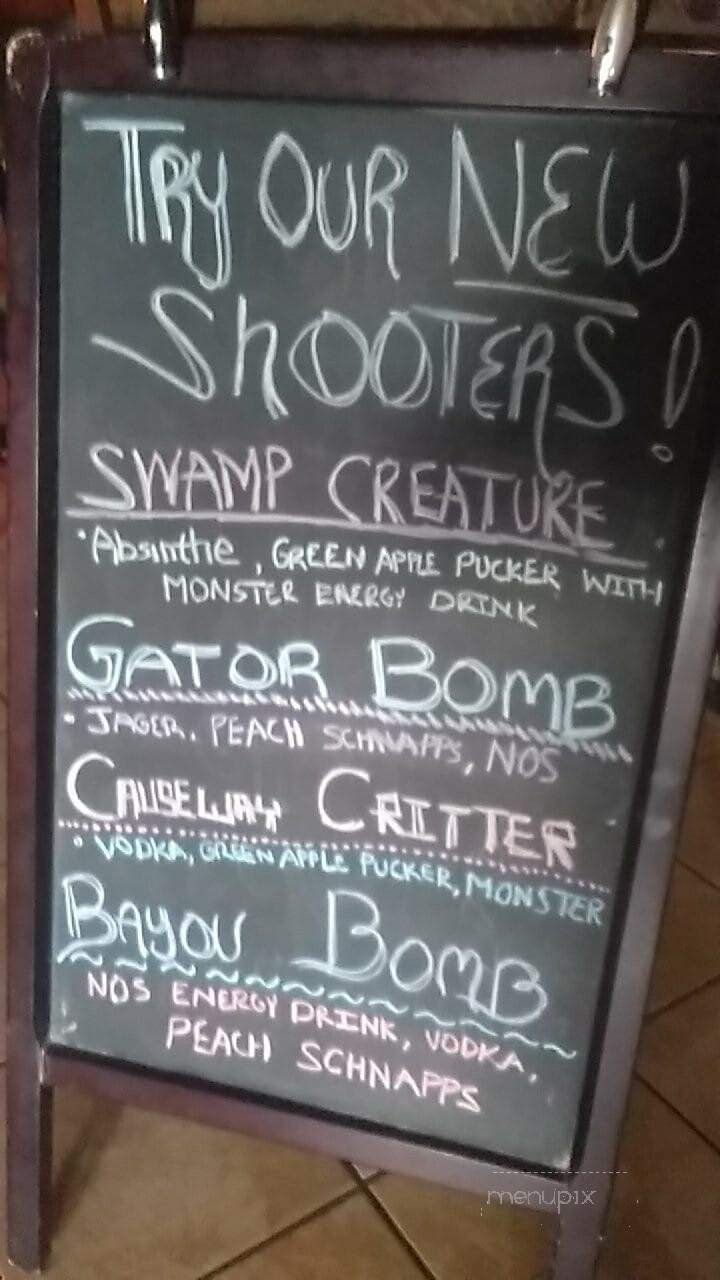 TRY OUR NEW
ShOOTERS!
SWAMP CREATURE
• Absinthe, GREEN APPLE PUCKER WITH
MONSTER ENERGY DRINK
GATOR BOMB
• JAGER, PEACH SCHNAPPS, NOS
CAUSEWAY CRITTER
• VODKA, GREEN APPLE PUCKER, MONSTER
BAYOU BOMB
NOS ENERGY DRINK, VODKA,
PEACH SCHNAPPS
menupix